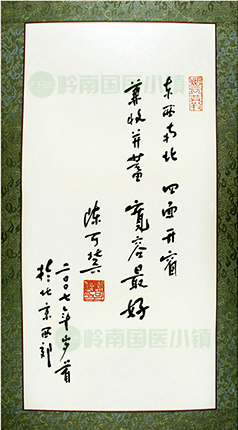 东西南北 四面开窗
兼收并蓄 宽容最好
陈可冀
二〇〇七年岁首
於北京西郊
岭南国医小镇
岭南国医小镇